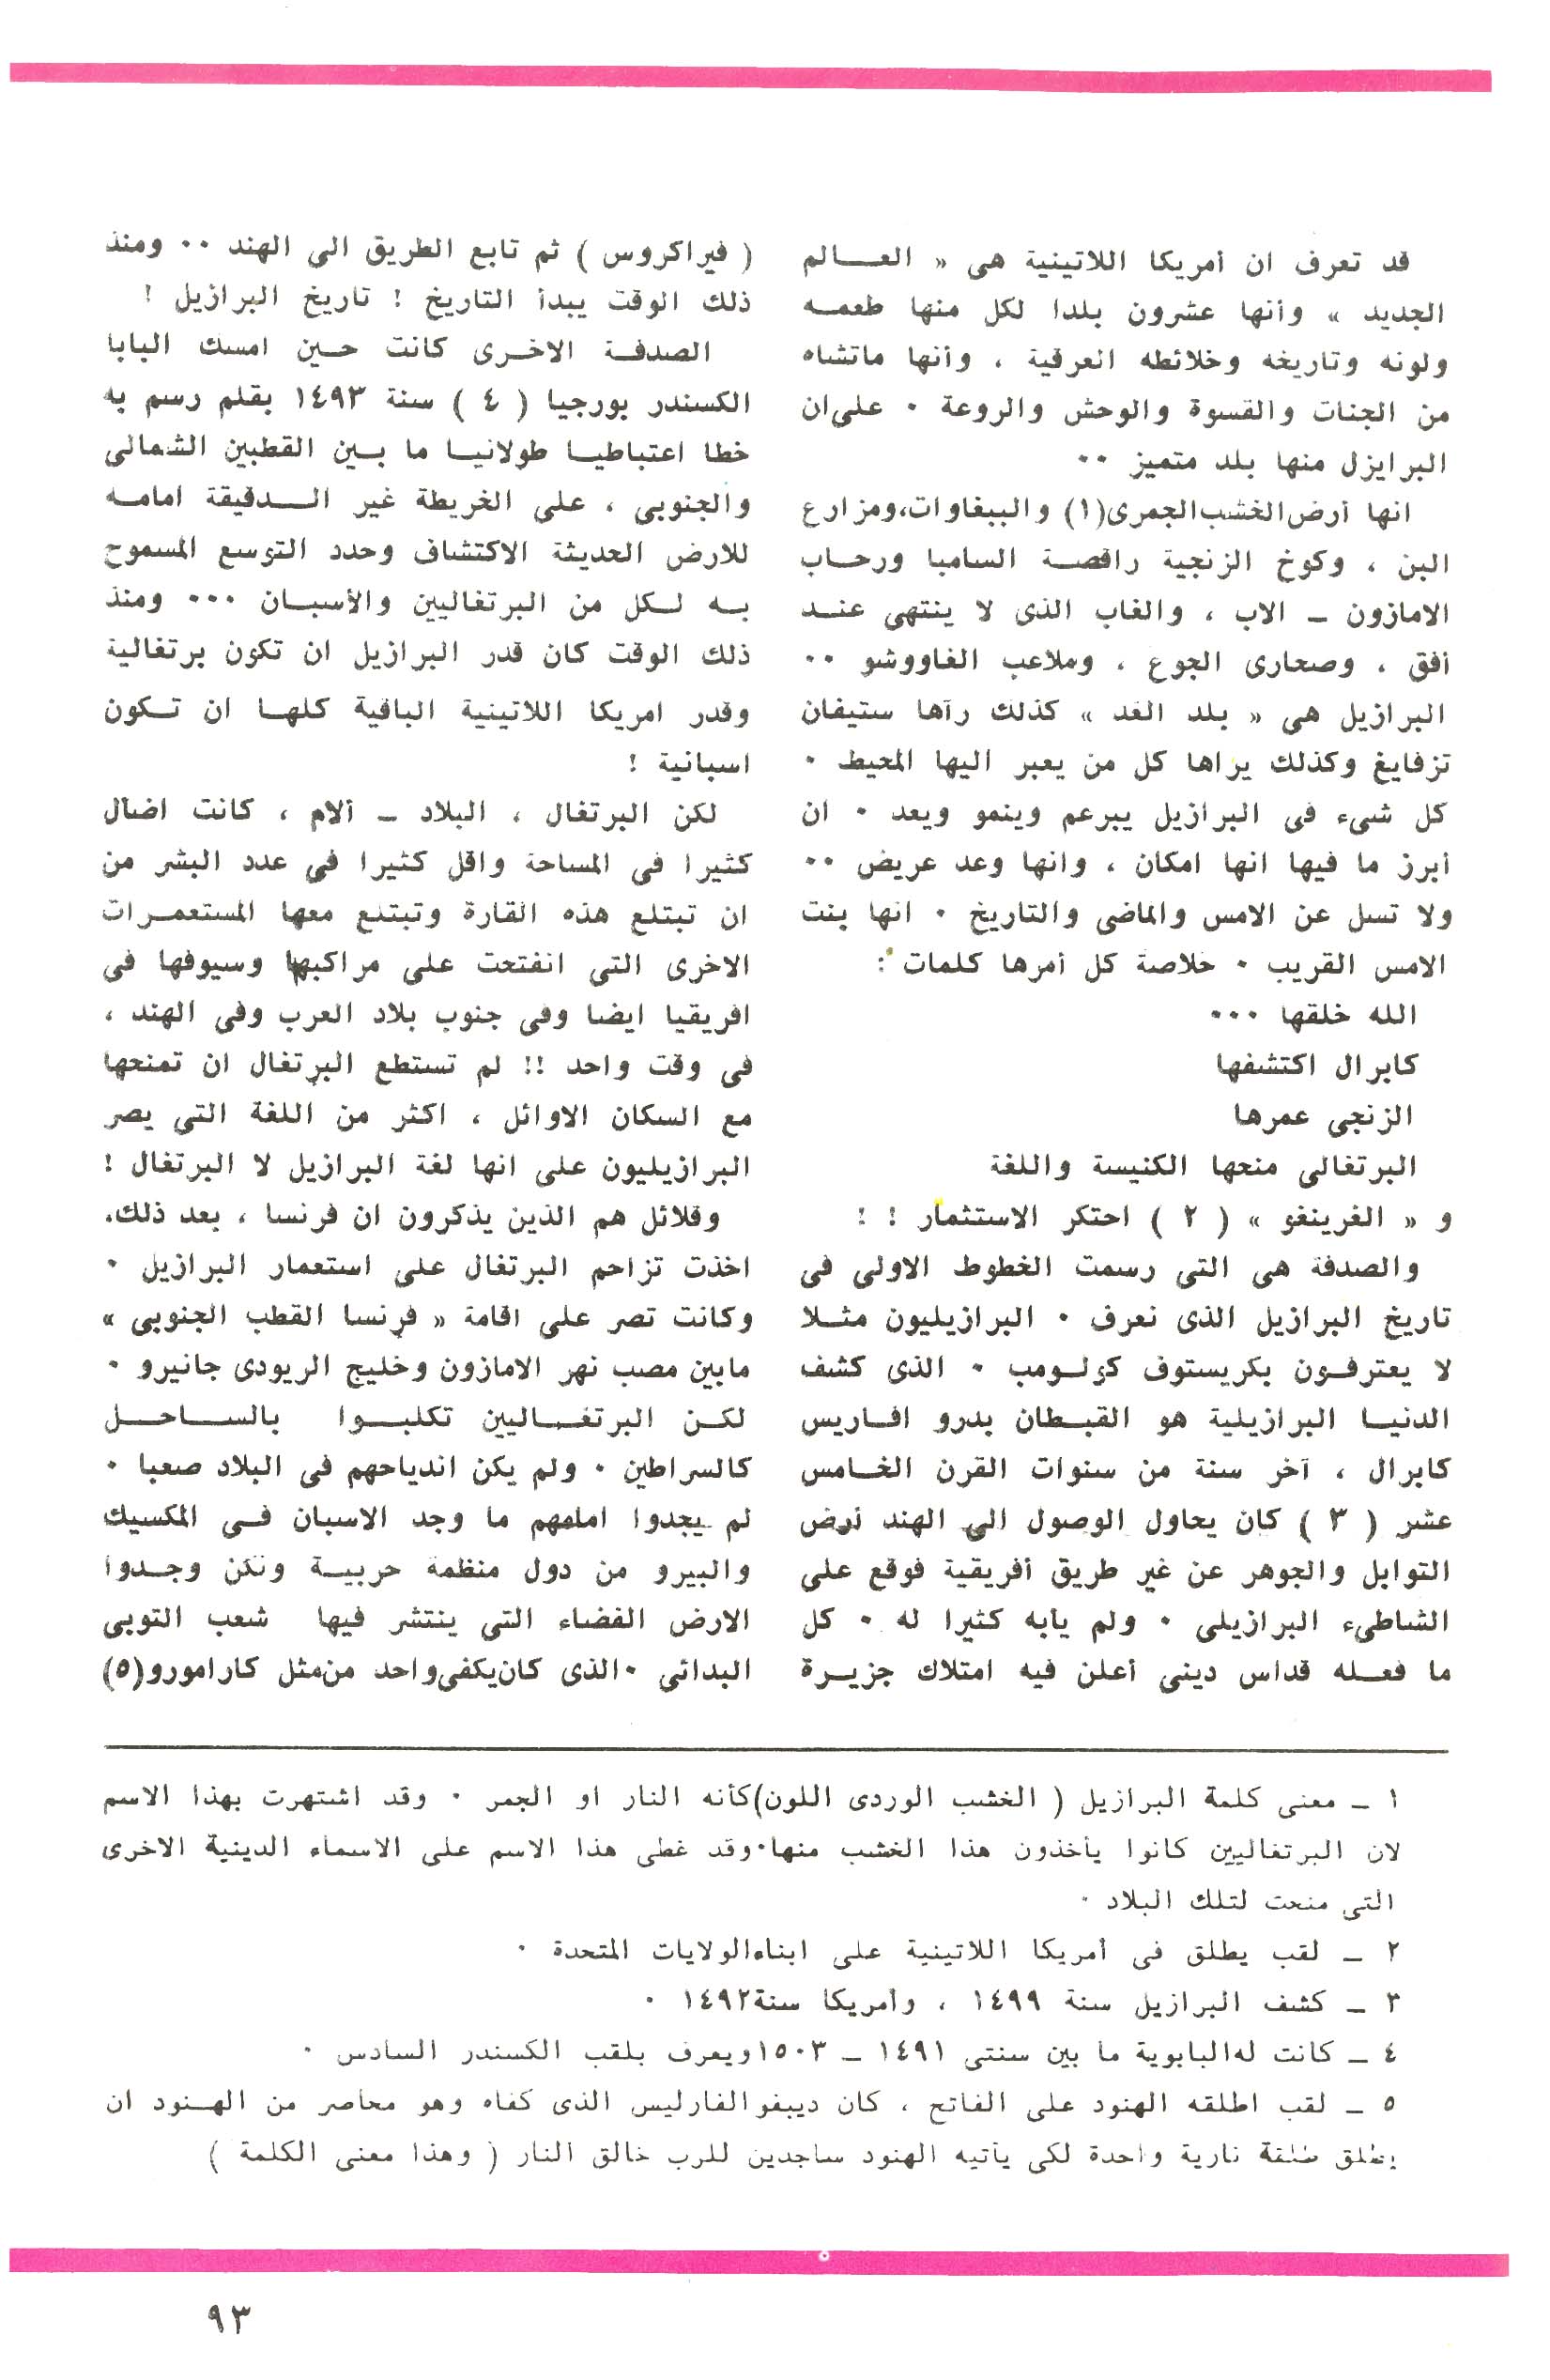 قد تعرف ان أمريكا اللاتينية هى « العـــالم
الجديد » وأنها عشرون بلدا لكل منها طعمه
ولونه وتاريخه وخلائطه العرقية ، وأنها ماتشاه
من الجنات والقسوة والوحش والروعة ٠ على ان
البرايزل منها بلد متميز ٠٠
انها أرض الخشب الجمرى(١) والببغاوات،ومزارع
البن ، وكوخ الزنجية راقصة السامبا ورحاب
الامازون ـ الاب ، والغاب الذى لا ينتهى عند
أفق ، وصحارى الجوع ، وملاعب الغاووشو ٠٠
البرازيل هى « بلد الغد » كذلك رآها ستيفان
تزفايغ وكذلك يراها كل من يعبر اليها المحيط ٠
كل شىء فى البرازيل يبرعم وينمو ويعد ٠ ان
أبرز ما فيها انها امكان ، وانها وعد عريض ٠٠
ولا تسل عن الامس والماضى والتاريخ ٠ انها بنت
الامس القريب ٠ خلاصة كل أمرها كلمات :
الله خلقها ٠٠٠
كابرال اكتشفها
الزنجى عمرها
البرتغالى منحها الكنيسة واللغة
و « الغرينغو » ( ٢ ) احتكر الاستثمار ! !
والصدفة هى التى رسمت الخطوط الاولى فى
تاريخ البرازيل الذى نعرف ٠ البرازيليون مثلا
لا يعترفون بكريستوف كولومب ٠ الذى كشف
الدنيا البرازيلية هو القبطان بدرو افاريس
كابرال ، آخر سنة من سنوات القرن الخامس
عشر ( ٣ ) كان يحاول الوصول الى الهند أرض
التوابل والجوهر عن غير طريق أفريقية فوقع على
الشاطىء البرازيلى ٠ ولم يأبه كثيرا له ٠ كل
ما فعله قداس دينى أعلن فيه امتلاك جزيرة
( فيراكروس ) ثم تابع الطريق الى الهند ٠٠ ومنذ
ذلك الوقت يبدأ التاريخ ! تاريخ البرازيل !
الصدفة الاخرى كانت حين امسك البابا
الكسندر بورجيا ( ٤ ) سنة ١٤٩٣ بقلم رسم به
خطا اعتباطيا طولانيا ما بين القطبين الشمالى
والجنوبى ، على الخريطة غير الدقيقة امامه
للارض الحديثة الاكتشاف وحدد التوسع المسموح
به لكل من البرتغاليين والأسبان ٠٠٠ ومنذ
ذلك الوقت كان قدر البرازيل ان تكون برتغالية
وقدر امريكا اللاتينية الباقية كلها ان تكون
اسبانية !
لكن البرتغال ، البلاد ـ ألام ، كانت اضأل
كثيرا فى المساحة واقل كثيرا فى عدد البشر من
ان تبتلع هذه القارة وتبتلع معها المستعمرات
الاخرى التى انفتحت على مراكبها وسيوفها فى
افريقيا ايضا وفى جنوب بلاد العرب وفى الهند ،
فى وقت واحد !! لم تستطع البرتغال ان تمنحها
مع السكان الاوائل ، اكثر من اللغة التى يصر
البرازيليون على انها لغة البرازيل لا البرتغال !
وقلائل هم الذين يذكرون ان فرنسا ، بعد ذلك،
اخذت تزاحم البرتغال على استعمار البرازيل ٠
وكانت تصر على اقامة « فرنسا القطب الجنوبى »
مابين مصب نهر الامازون وخليج الريودى جانيرو ٠
لكن البرتغاليين تكلبوا بالساحل
كالسراطين ٠ ولم يكن اندياحهم فى البلاد صعبا ٠
لم يجدوا امامهم ما وجد الاسبان فى المكسيك
والبيرو من دول منظمة حربية ولكن وجدوا
الارض الفضاء التى ينتشر فيها شعب التوبى
البدائى ٠ الذى كان يكفى واحد من مثل كارامورو(٥)
١ ـ معنى كلمة البرازيل ( الخشب الوردى اللون)كأنه النار او الجمر ٠ وقد اشتهرت بهذا الاسم
لان البرتغاليين كانوا يأخذون هذا الخشب منها٠وقد غطى هذا الاسم على الاسماء الدينية الاخرى
التى منحت لتلك البلاد ٠
٢ ـ لقب يطلق فى أمريكا اللاتينية على ابناءالولايات المتحدة ٠
٣ ـ كشف البرازيل سنة ١٤٩٩ ، وأمريكا سنة١٤٩٢ ٠
٤ ـ كانت له البابوية ما بين سنتى ١٤٩١ ـ ١٥٠٣ويعرف بلقب الكسندر السادس ٠
٥ ـ لقب اطلقه الهنود على الفاتح ، كان ديبغو الفارليس الذى كفاه وهو محاصر من الهنود ان
يطلق طلقة نارية واحدة لكى يأتيه الهنود ساجدين للرب خالق النار ( وهذا معنى الكلمة )
٩٣